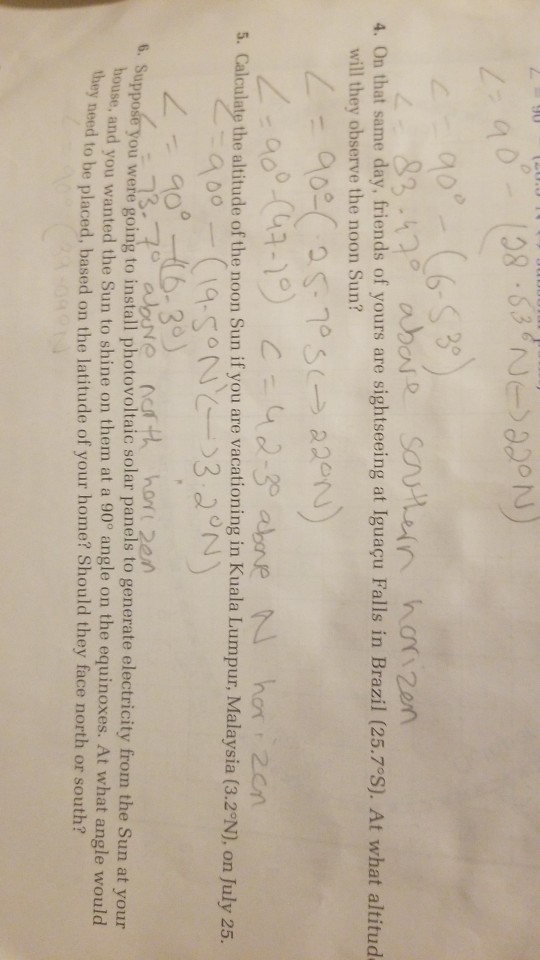 L = 90° - (28.53°N ↔ 22°N)
L = 90° - (6.53°)
L = 83.47° above southern horizen
4. On that same day, friends of yours are sightseeing at Iguaçu Falls in Brazil (25.7°S). At what altitud
will they observe the noon Sun?
L = 90° - (25.7°S ↔ 22°N)
L = 90° - (47.7°) L = 42.3° above N horizen
5. Calculate the altitude of the noon Sun if you are vacationing in Kuala Lumpur, Malaysia (3.2°N), on July 25.
L = 90° - (19.5°N ↔ 3.2°N)
L = 90° - (16.3°)
L = 73.7° above north horizen
6. Suppose you were going to install photovoltaic solar panels to generate electricity from the Sun at your
house, and you wanted the Sun to shine on them at a 90° angle on the equinoxes. At what angle would
they need to be placed, based on the latitude of your home? Should they face north or south?